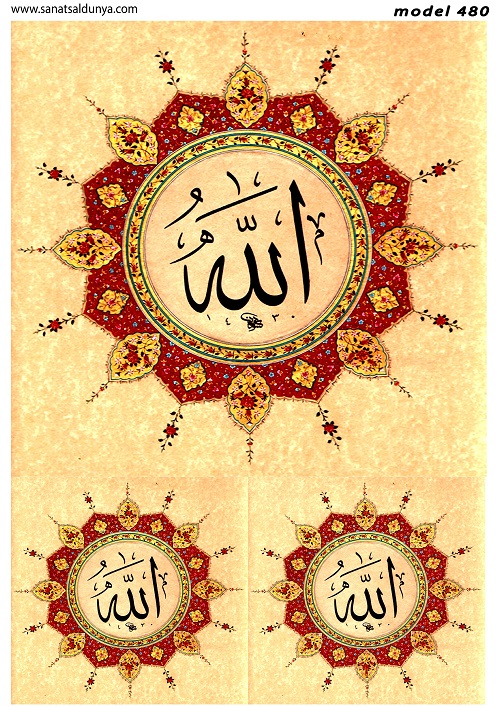 www.sanatsaldunya.com
model 480
الله
١٤٣٠
الله
الله